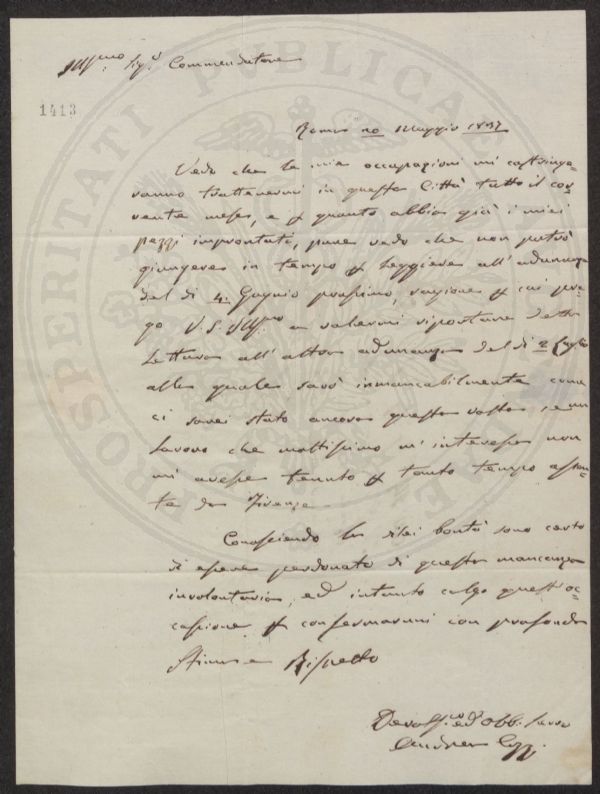 Ill.mo Sig.r Commendatore
1413
Roma 20 Maggio 1837
Vedo che le mie occupazioni mi costringe-
ranno trattenermi in questa Città tutto il cor-
rente mese, e p quanto abbia già i miei
pezzi improntati, pure vedo che non potrò
giungere in tempo p leggere all'adunanza
del dì 4. Giugno prossimo, ragione p cui pre-
go V.S. Ill.ma a valermi riportare detta
Lettura all'altra adunanza del dì 2 Luglio
alla quale sarò immancabilmente come
ci sarei stato ancora questa volta, se un
lavoro che moltissimo m'interessa non
mi avesse tenuto p tanto tempo assen-
te da Firenze.
Conoscendo la di lei bontà sono certo
di essere perdonato di questa mancanza
involontaria, ed intanto colgo quest'oc-
casione p confermarmi con profonda
Stima e Rispetto
Devotis.mo ed Obb. Servo
Andrea
PROSPERITATI PUBLICAE